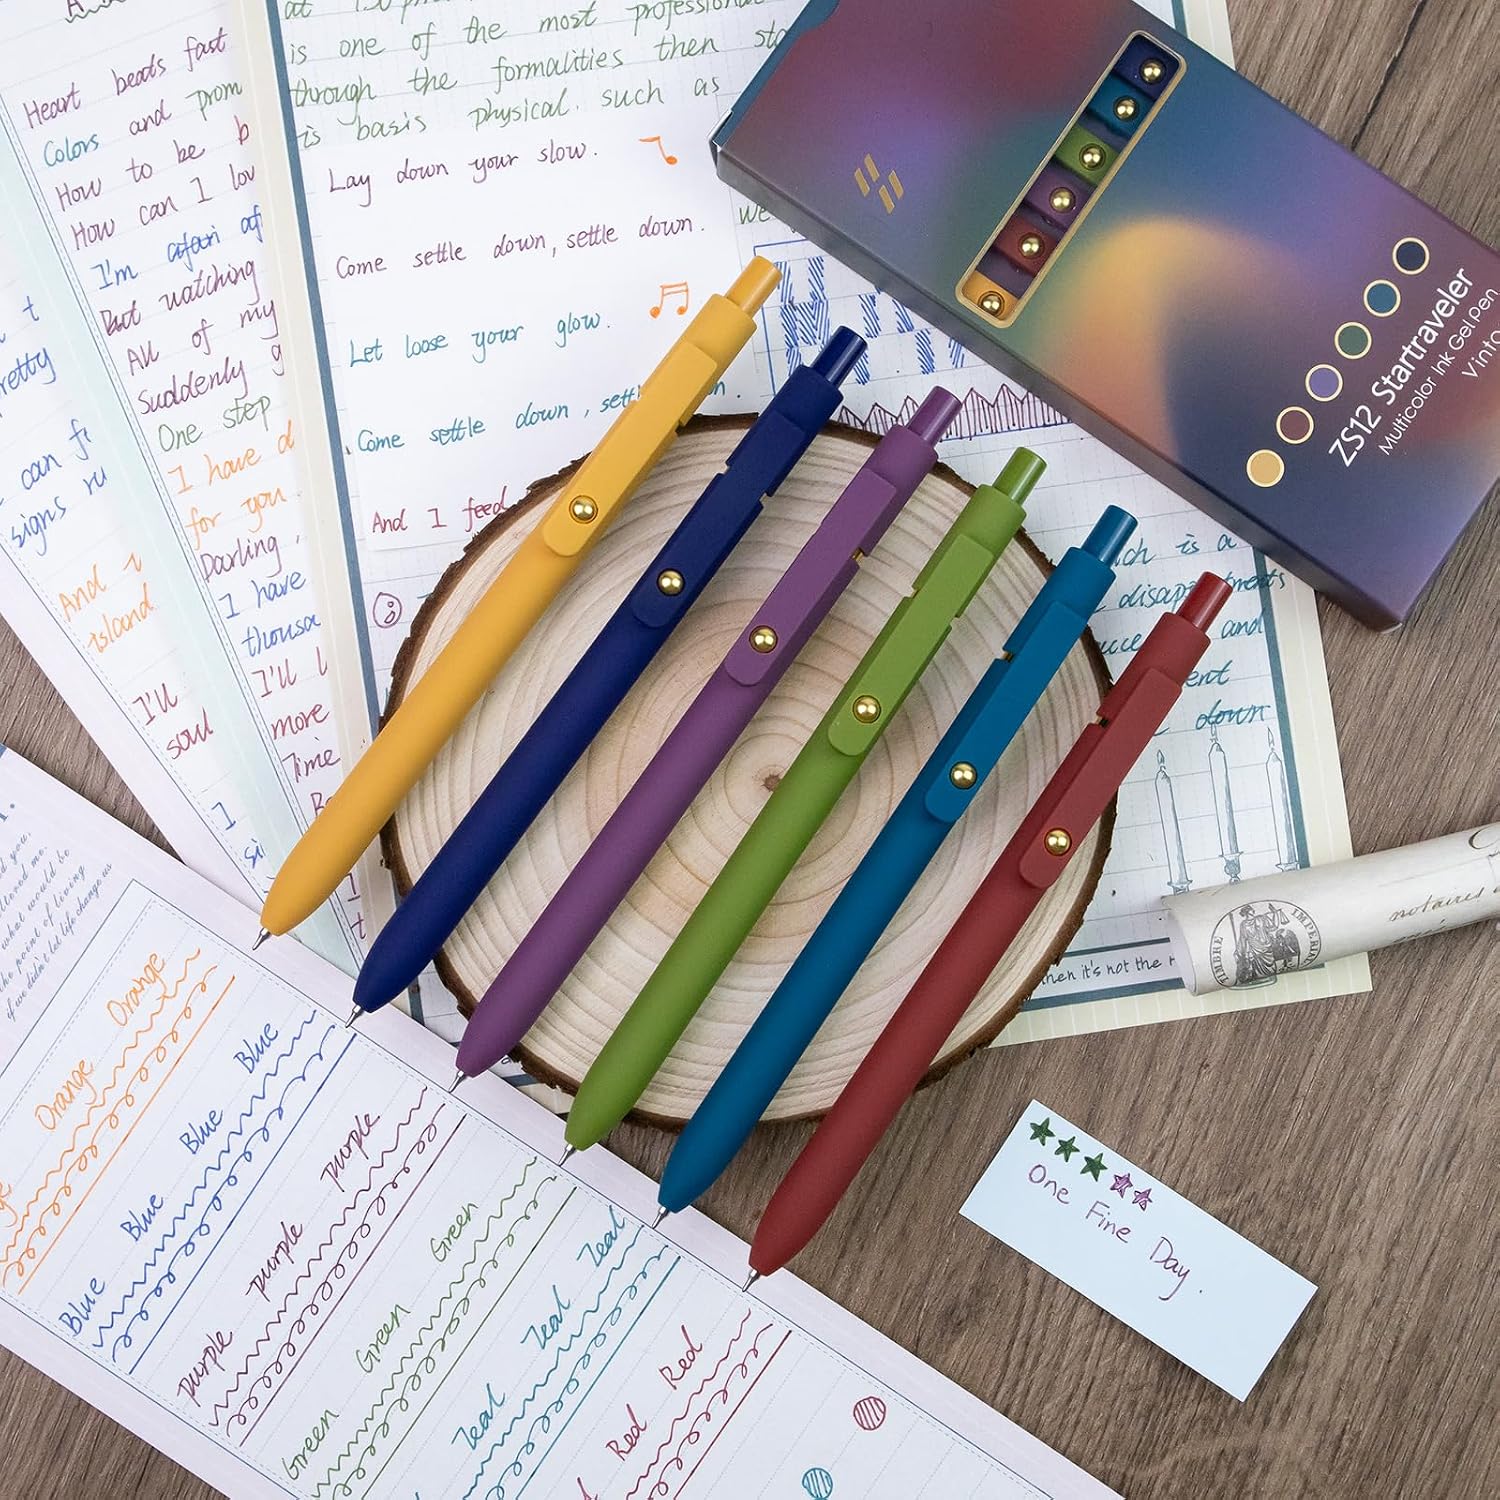 Heart beads fast
Colors and prom
How to be b
How can I lov
I'm afari af
But watching
All of my
Suddenly g
One step
I have d
for you
Darling,
I have
thousa
I'll l
more
Time
retty
can fi
signs ru
And i
island
I'll
soul
is one of the most professional
through the formalities then sta
is basis physical. such as
Lay down your slow.
Come settle down, settle down.
Let loose your glow.
Come settle down, settl
And I feed
ZS12 Startraveler
Multicolor Ink Gel Pen
Vinta
ch is a
disappointments
and
ent
down
hen it's not the
TIMBRE IMPERIAL
notaires
what would be
the point of living
if we didn't let life change us
Orange
Orange
Blue
Blue
Blue
Blue
purple
purple
purple
Green
Green
Green
Teal
Teal
Teal
Red
Red
One Fine Day.